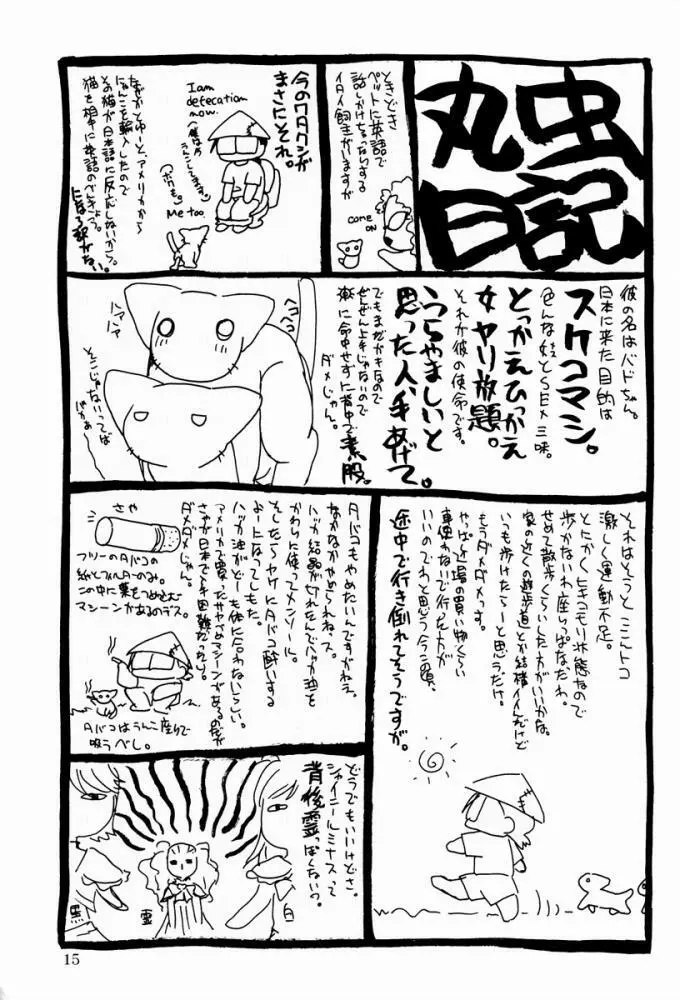 丸虫
日記
ときどき
ペットに英語で
話しかけちゃったりする
イタイ飼主がいますが
come
ON
今のワタクシが
まさにそれ。
I am
defecation
now.
Me too.
なぜかとゆーとアメリカから
にゃんこを輸入したので
その猫が日本語に反応しないから。
猫を相手に英語のべんきょう。
になる訳がない。
彼の名はバドちゃん。
日本に来た目的は
スケコマシ。
色んな妓とSEX三昧。
とっかえひっかえ
女ヤリ放題。
それが彼の使命です。
うらやましいと
思った人、手あげて。
でもまだガキなので
ぜんぜん上手じゃないので
楽に命中せずに背中で素股。
ダメじゃん。
ヘコヘコ
ハアハア
そこじゃないってば
ばかぁー
それはそうとここんトコ
激しく運動不足。
とにかくヒキコモリ状態なので
歩かないわ座りっぱなだわ。
せめて散歩くらいした方がいいかな。
家の近くの遊歩道とか結構イイんだけど
いつも歩けたらーと思うだけ。
もうダメダメっす。
やっぱ近場の買い物くらい
車使わないで行った方が
いいのでわと思う今この頃、
途中で行き倒れてそうですが。
タバコもやめたいんですがねえ。
なかなかやめられねっス。
ハッカ結晶が切れたんでハッカ油を
かわりに使ってメンソール。
そしたらヤケにタバコ酔いする
よーになってしもた。
ハッカ油がどーも体に合わないらしい。
アメリカで買ったサヤづめマシーンがあるのだが
さやが日本で入手困難だったり。
ダメダメじゃん。
さや
フリーのタバコの
紙とフィルターのみ。
この中に葉をつめ込む
マシーンがあるのデス。
タバコはうんこ座りで
吸うべし。
どうでもいいけどさ。
シャイニールミナスって
背後霊っぽくない?
黒
霊
白
15